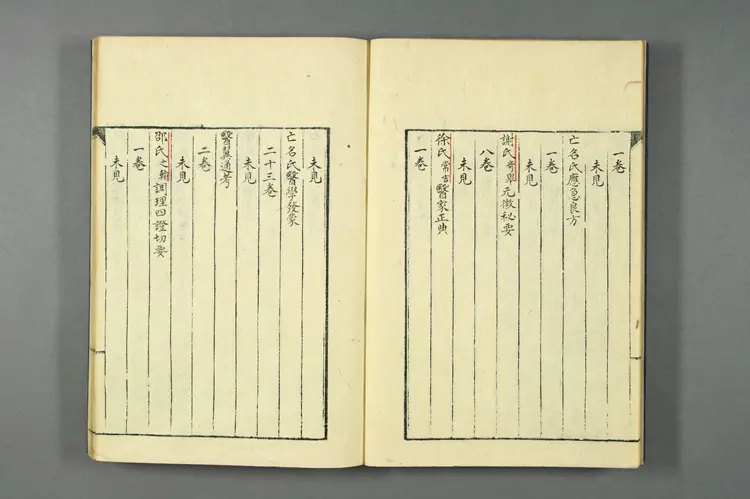 一卷
未見
亡名氏應急良方
一卷
未見
謝氏 元微秘要
八卷
未見
徐氏常吉醫家正典
一卷
未見
亡名氏醫學發蒙
二十三卷
未見
醫翼通考
二卷
未見
邵氏之翰調理四證切要
一卷
未見